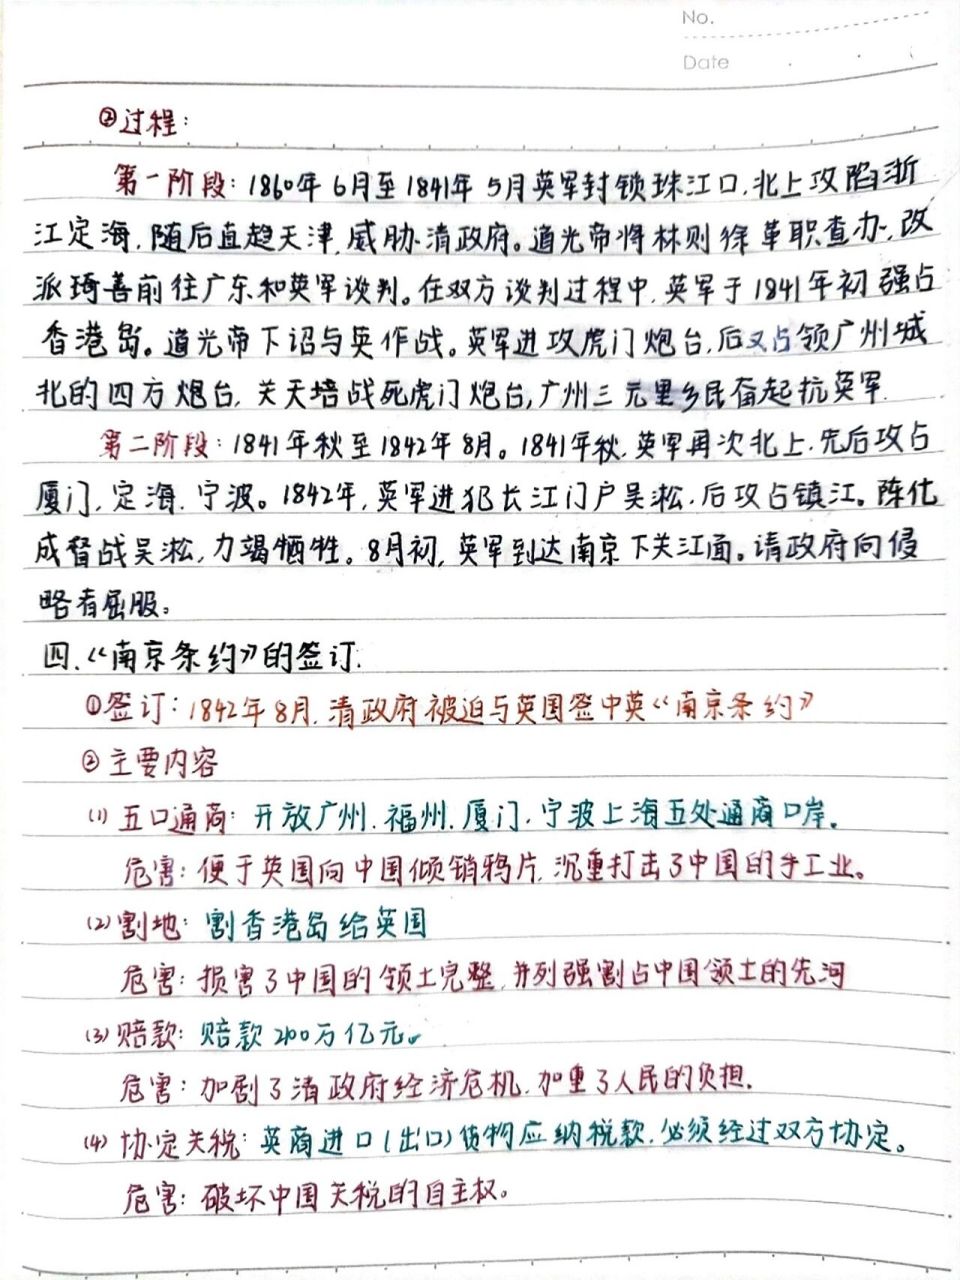 No.
Date
②过程:
第一阶段:1860年6月至1841年5月英军封锁珠江口,北上攻陷浙
江定海,随后直趋天津,威胁清政府。道光帝将林则徐革职查办,改
派琦善前往广东和英军谈判。在双方谈判过程中,英军于1841年初强占
香港岛。道光帝下诏与英作战。英军进攻虎门炮台,后又占领广州城
北的四方炮台,关天培战死虎门炮台,广州三元里乡民奋起抗英军.
第二阶段:1841年秋至1842年8月。1841年秋,英军再次北上,先后攻占
厦门,定海,宁波。1842年,英军进犯长江门户吴淞,后攻占镇江。陈化
成督战吴淞,力竭牺牲。8月初,英军到达南京下关江面。请政府向侵
略者屈服。
四.《南京条约》的签订.
①签订:1842年8月,清政府被迫与英国签中英《南京条约》
②主要内容
(1)五口通商:开放广州.福州.厦门.宁波上海五处通商口岸.
危害:便于英国向中国倾销鸦片,沉重打击了中国的手工业。
(2)割地:割香港岛给英国
危害:损害了中国的领土完整,并列强割占中国领土的先河
(3)赔款:赔款2100万亿元。
危害:加剧了清政府经济危机,加重了人民的负担.
(4)协定关税:英商进口(出口)货物应纳税款,必须经过双方协定。
危害:破坏中国关税的自主权。